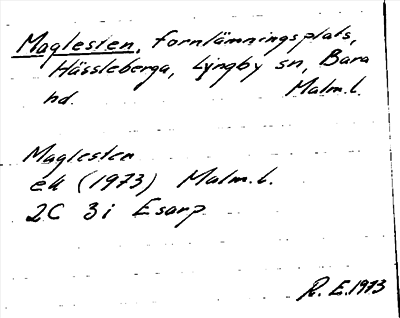 Maglesten, fornlämningsplats,
Hässleberga, Lyngby sn, Bara
hd. Malm.l.
Maglesten
ek (1973) Malm.l.
2C 3i Esarp
R.E.1973